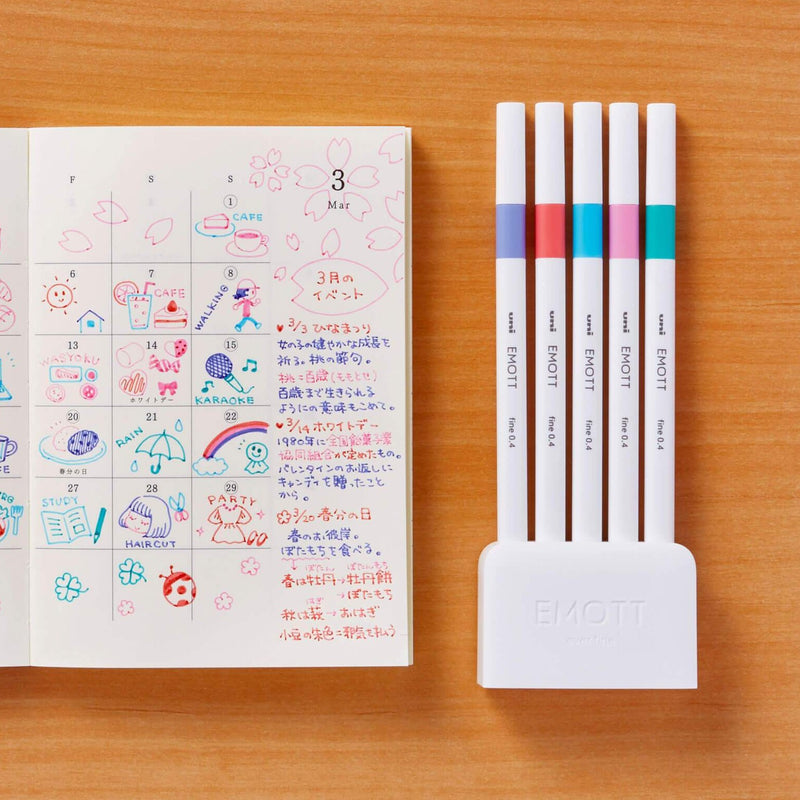 F S S
3
Mar
1
CAFE
6 7 8
CAFE
WALKING
3月の
イベント
♥ 3/3 ひなまつり
女の子の健やかな成長を
祈る。桃の節句。
桃=百歳(ももとせ)
百歳まで生きられる
ようにの意味もこめて。
♥ 3/14 ホワイトデー
1980年に全国飴菓子業
協同組合が定めたもの。
バレンタインのお返しに
キャンディを贈ったこと
から。
3/20 春分の日
春のお彼岸。
ぼたもちを食べる。
ぼたん ぼたんもち
春は牡丹→牡丹餅
→ぼたもち
はぎ
秋は萩→おはぎ
小豆の朱色=邪気を払う
13 14 15
WASYOKU
ホワイトデー
KARAOKE
20 21 22
RAIN
春分の日
27 28 29
STUDY
HAIRCUT
PARTY
uni EMOTT fine 0.4
uni EMOTT fine 0.4
uni EMOTT fine 0.4
uni EMOTT fine 0.4
uni EMOTT fine 0.4
EMOTT